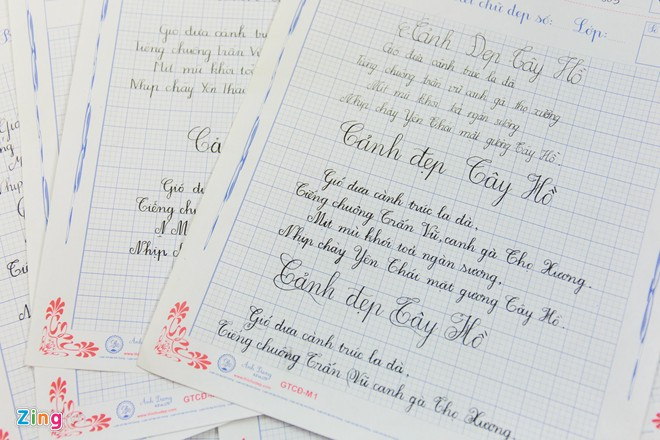 chữ đẹp số: Lớp:
Cảnh Đẹp Tây Hồ
Gió đưa cành trúc la đà
Tiếng chuông trấn vũ canh gà thọ xương
Mịt mù khói toả ngàn sương
Nhịp chày Yên Thái mặt gương Tây Hồ.
Cảnh đẹp Tây Hồ
Gió đưa cành trúc la đà,
Tiếng chuông Trấn Vũ, canh gà Thọ Xương.
Mịt mù khói toả ngàn sương,
Nhịp chày Yên Thái mặt gương Tây Hồ.
Cảnh đẹp Tây Hồ
Gió đưa cành trúc la đà,
Tiếng chuông Trấn Vũ canh gà Thọ Xương.
GTCD-M1
Gió đưa cành trúc
Tiếng chuông Trấn Vũ
Mịt mù khói toả
Nhịp chày Yên Thái
Cả
Gió đưa
Tiếng chuông
Nhịp
Ánh Dương
GTCD
Ánh Dương
Zing